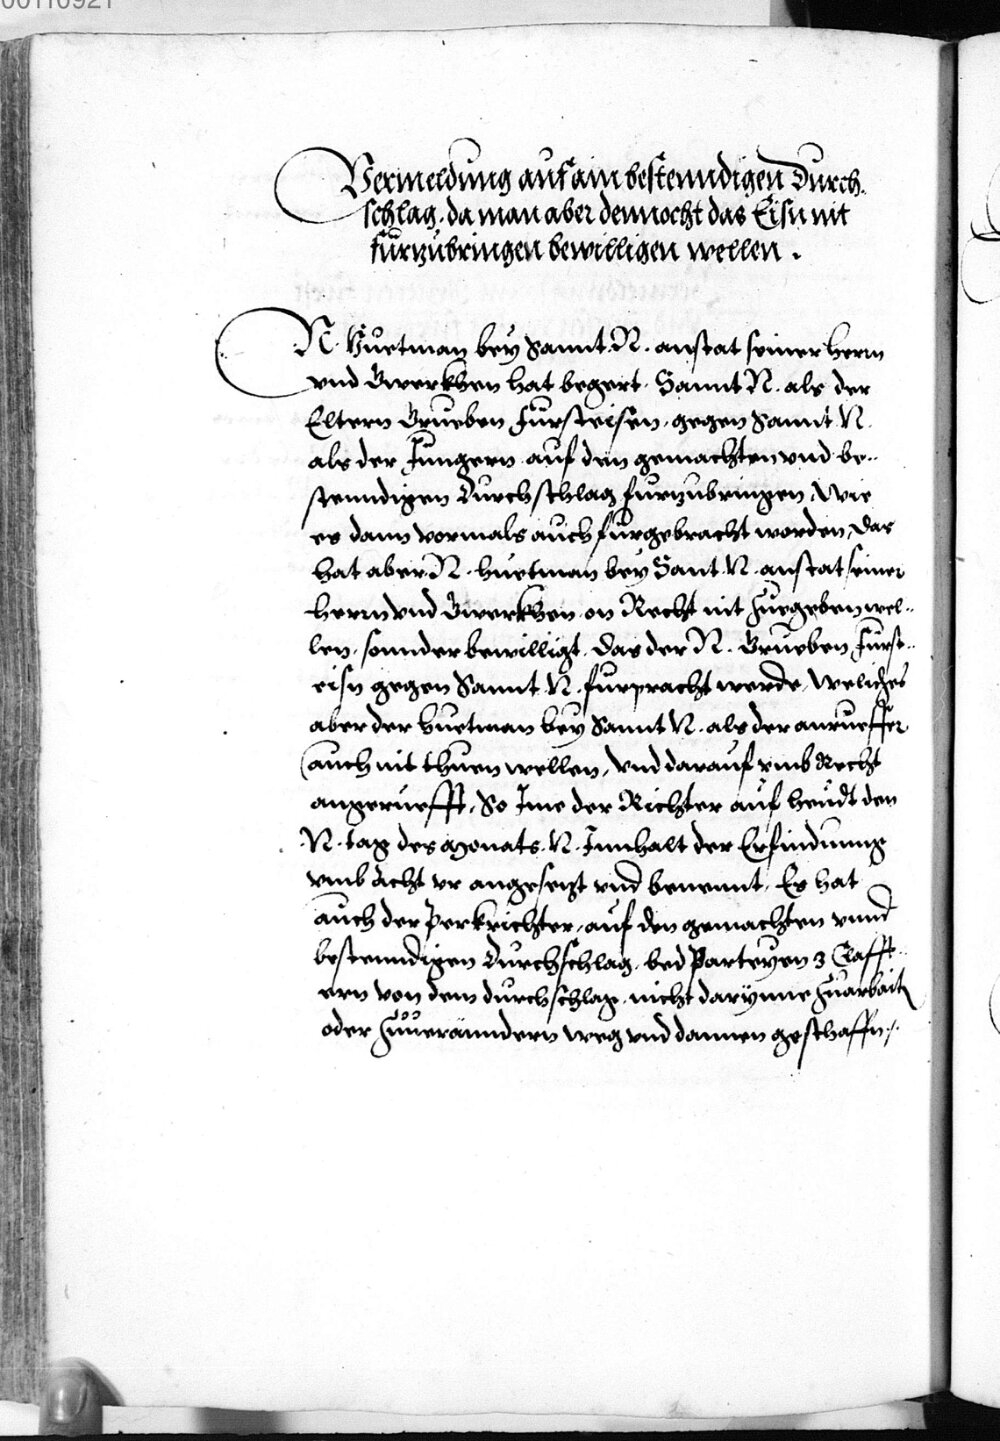 00110921
Vermeldung auf ain bestenndigen Durch
schlag. da man aber dennocht das Eisn nit
fürzubringen bewilligen wellen.
N. Huetman bey Sannt. N. anstat seiner herrn
vnd Gwerkhen hat begert. Sannt N. als der
Eltern Grueben Fürsteisen, gegen Sannt. N.
als der Jungern auf den gemachten vnd be-
stenndigen Durchschlag fürzubringen, Wie
es dann vormals auch fürgebracht worden, Das
hat aber N. huetman bey Sant. N. anstat seiner
herrn vnd Gwerkhen on Recht nit Zuegeben wel-
len, sonnder bewilligt, das der N. Grueben Fürst-
eisn gegen Sannt N. furpracht werde, Weliches
aber der huetman bey Sannt N. als der anrueffer
auch nit thuen wellen, vnd darauf vmb Recht
angeruefft, So Ime der Richter auf heudt den
N. tag des monats. N. Innhalt der Erfindung
vmb Acht vr angesetzt vnd benennt, Es hat
auch der Perkrichter, auf den gemachten vnnd
bestenndigen Durchschlag, bed Partheyen 3 Clafft-
ern von dem durchschlag, nicht darynne Zuarbaitn
oder Zuueränndern weg vnd dannen geschaffn :/.